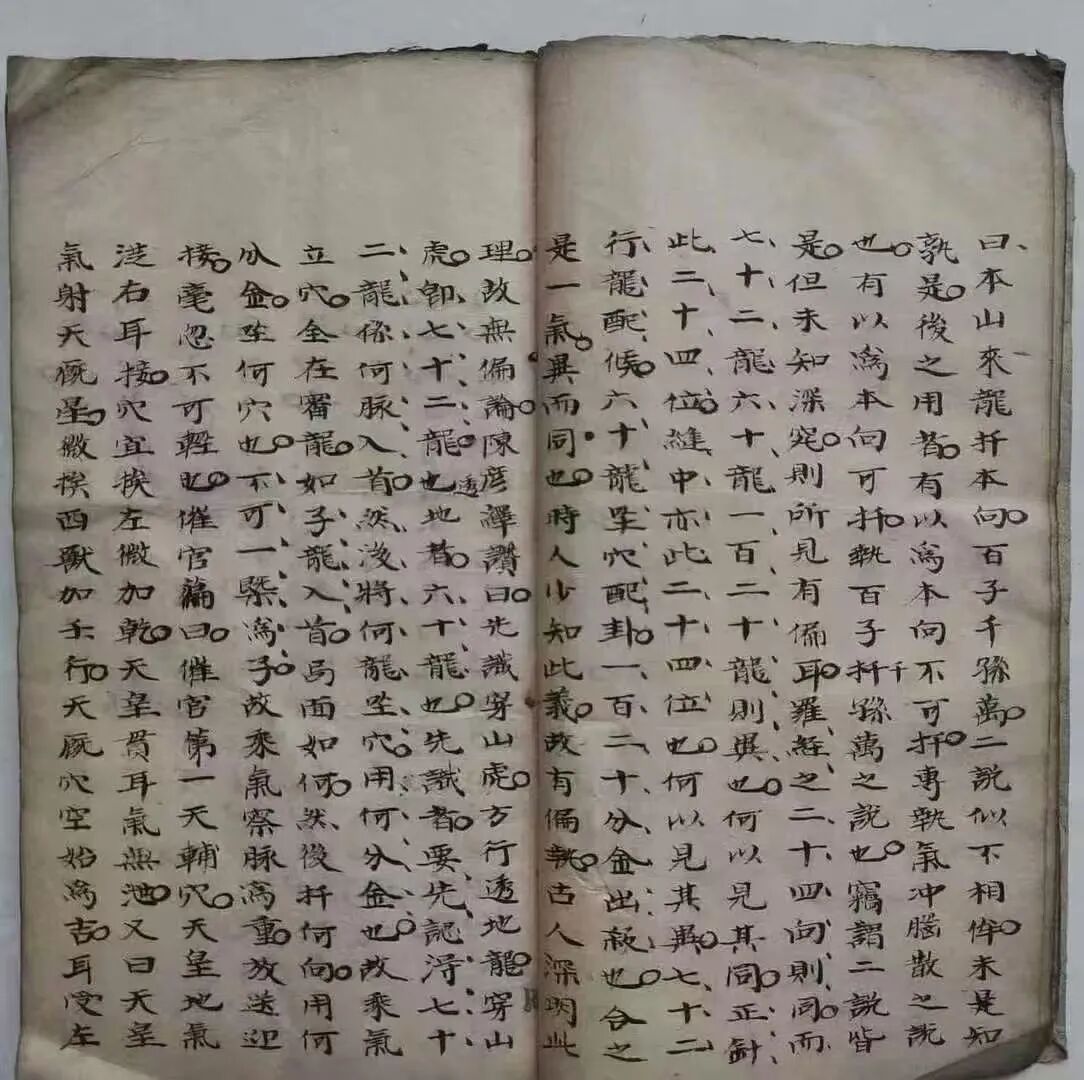 曰本山來龍扦本向百子千孫萬二説似不相侔未是知
孰是後之用者有以為本向不可扦專執氣冲腦散之説
也有以為本向可扦執百子扦千孫萬之説也竊謂二説皆
是但未知深究則所見有偏耳羅經之二十四向則同而
七十二龍六十龍一百二十龍則異也何以見其同正針
此二十四位縫中亦此二十四位也何以見其異七十二
行龍配候六十龍坐穴配卦一百二十分金出殺也合之
是一氣異而同也時人少知此義故有偏執古人深明此
理故無偏論陳彦繹讚曰先識穿山虎方行透地龍穿山
虎卽七十二龍也透地者六十龍也先識者要先認淂七十
二龍係何脉入首然後將何龍坐穴用何分金也故乘氣
立穴全在審龍如子龍入首局面如何然後扦何向用何
分金坐何穴也不可一槩為子故乘氣察脉為重放送迎
接毫忽不可輕也催官篇曰催官第一天輔穴天皇地氣
淩右耳接穴宜挨左微加乾天皇貫耳氣無池又曰天皇
氣射天厩星微挨西獸加壬行天厩穴空始為吉耳受左